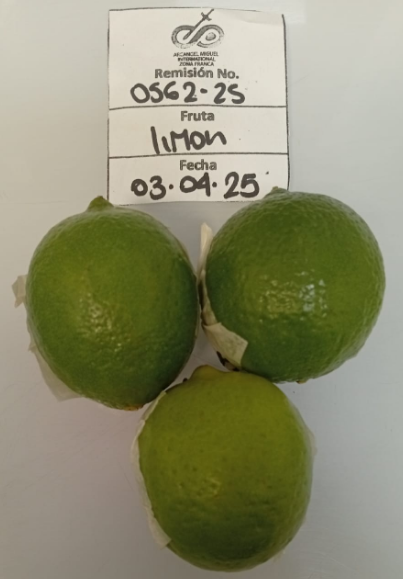 ARCANGEL MIGUEL
INTERNATIONAL
ZONA FRANCA
Remisión No.
0562-25
Fruta
limon
Fecha
03.04.25